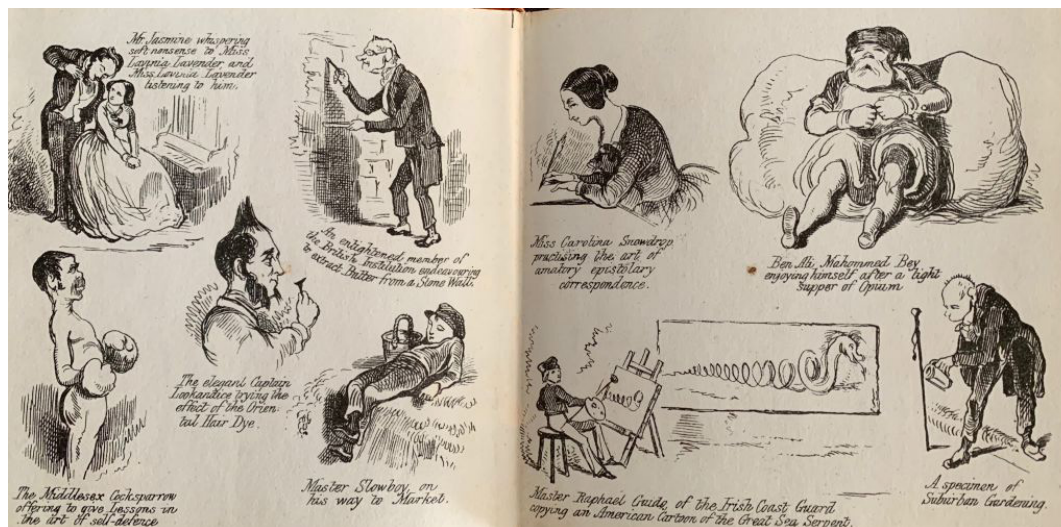 Mr. Jasmine whispering
soft nonsense to Miss
Lavinia Lavender, and
Miss Lavinia Lavender
listening to him.
An enlightened member of
the British Institution endeavouring
to extract Butter from a Stone Wall.
The elegant Captain
Lookandice trying the
effect of the Orien-
tal Hair Dye.
The Middlesex Cocksparrow
offering to give Lessons in
the art of self-defence
Master Slowboy, on
his way to Market.
Miss Carolina Snowdrop
practising the art of
amatory epistolary
correspondence.
Ben Ali Mahommed Bey
enjoying himself after a light
supper of Opium
Master Raphael Guido, of the Irish Coast Guard
copying an American Cartoon of the Great Sea Serpent.
A specimen of
Suburban Gardening.